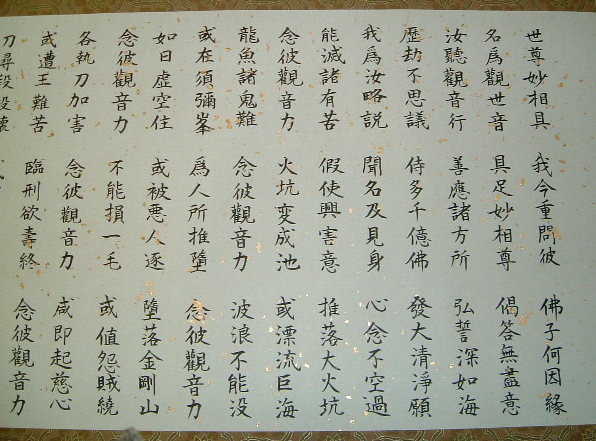 世尊妙相具 我今重問彼 佛子何因緣
名爲觀世音 具足妙相尊 偈答無盡意
汝聽觀音行 善應諸方所 弘誓深如海
歷劫不思議 侍多千億佛 發大清淨願
我爲汝略説 聞名及見身 心念不空過
能滅諸有苦 假使興害意 推落大火坑
念彼觀音力 火坑變成池 或漂流巨海
龍魚諸鬼難 念彼觀音力 波浪不能没
或在須彌峯 爲人所推墮 念彼觀音力
如日虚空住 或被悪人逐 墮落金剛山
念彼觀音力 不能損一毛 或値怨賊繞
各執刀加害 念彼觀音力 咸即起慈心
或遭王難苦 臨刑欲壽終 念彼觀音力
刀尋段段壊